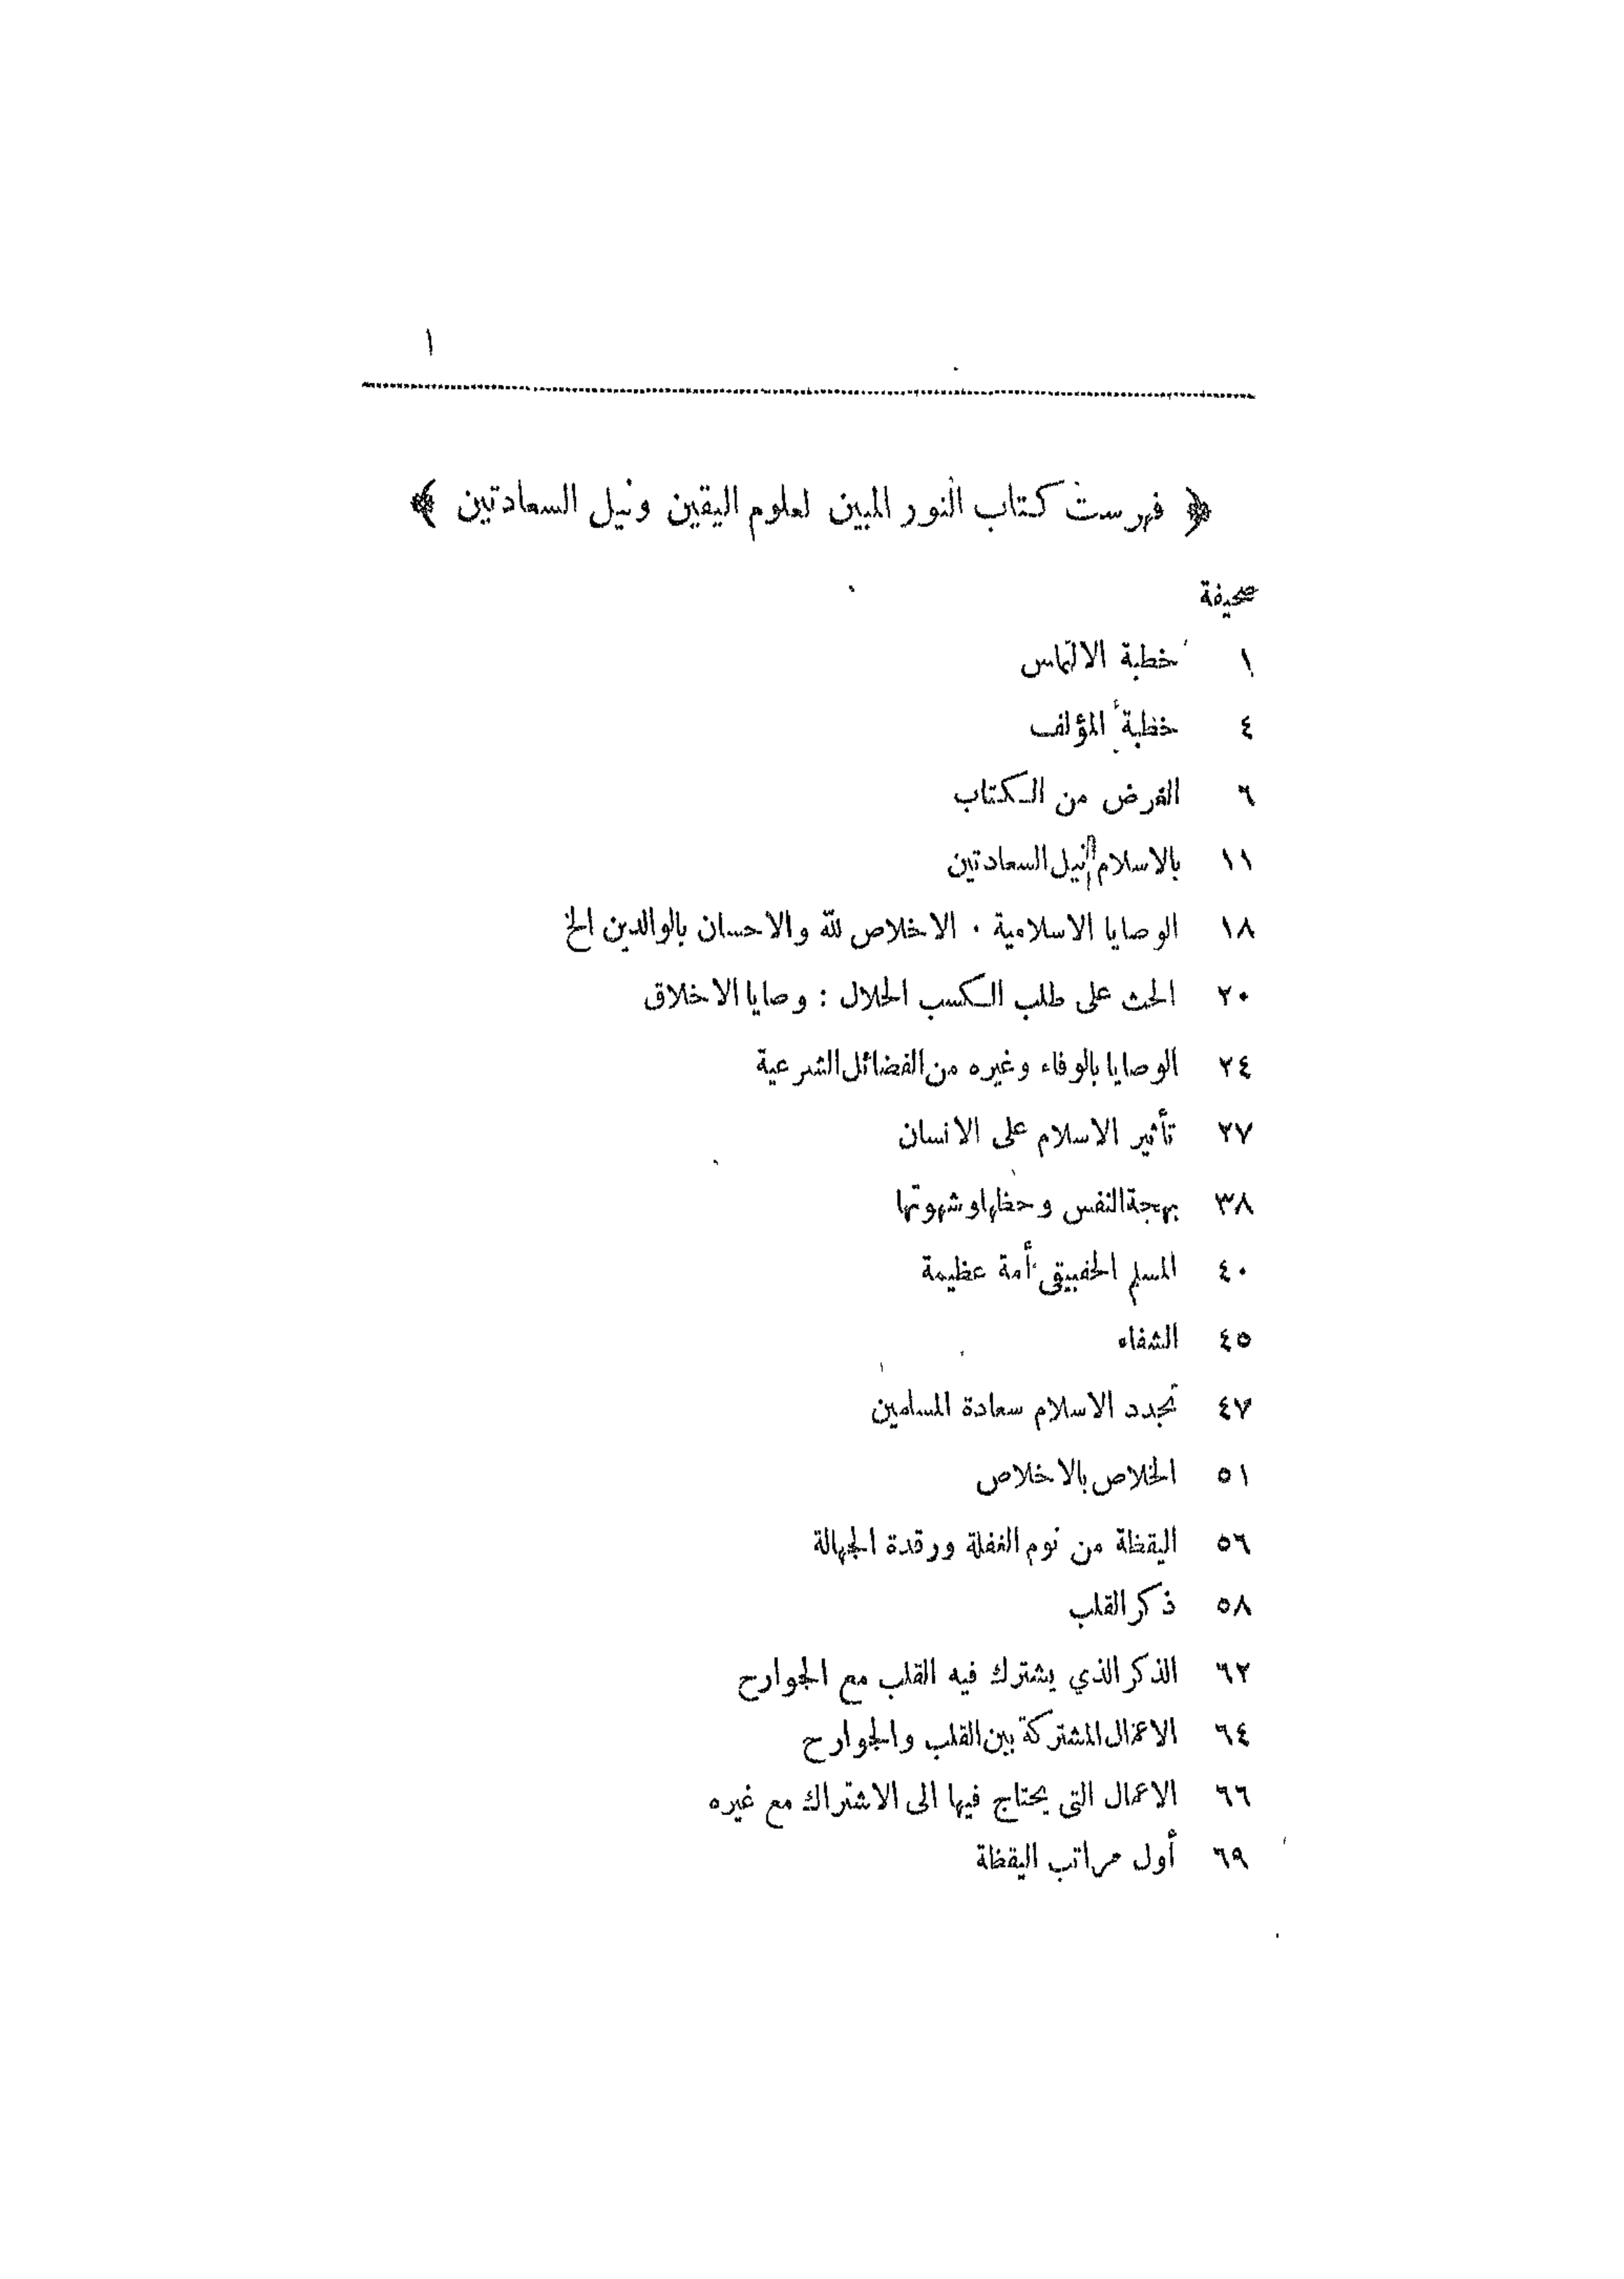 ١
﴿ فهرست كتاب النور المبين لعلوم اليقين ونيل السعادتين ﴾
صحيفة
١ خطبة الالتماس
٤ خطبة المؤلف
٦ الغرض من الكتاب
١١ بالاسلام نيل السعادتين
١٨ الوصايا الاسلامية . الاخلاص لله والاحسان بالوالدين الخ
٢٠ الحث على طلب الكسب الحلال : وصايا الاخلاق
٢٤ الوصايا بالوفاء وغيره من الفضائل الشرعية
٢٧ تأثير الاسلام على الانسان
٣٨ بهجة النفس وحظها وشهوتها
٤٠ المسلم الحقيقى أمة عظيمة
٤٥ الشفاء
٤٧ تجدد الاسلام سعادة المسلمين
٥١ الخلاص بالاخلاص
٥٦ اليقظة من نوم الغفلة ورقدة الجهالة
٥٨ ذكر القلب
٦٢ الذكر الذي يشترك فيه القلب مع الجوارح
٦٤ الاعمال المشتركة بين القلب والجوارح
٦٦ الاعمال التى يحتاج فيها الى الاشتراك مع غيره
٦٩ أول مراتب اليقظة